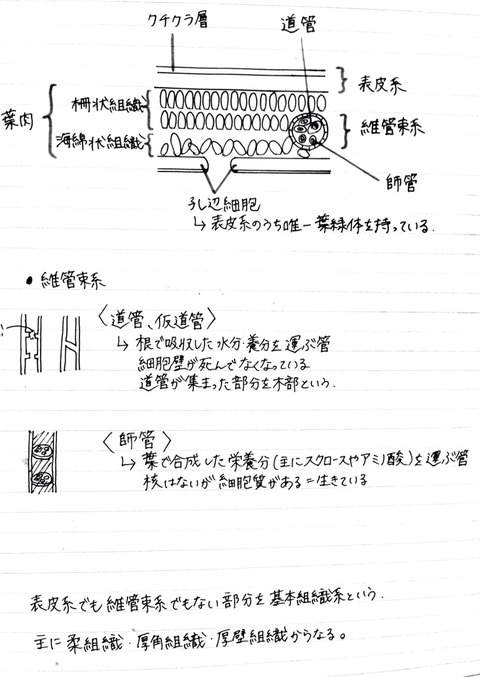 クチクラ層
道管
表皮系
葉肉
柵状組織
維管束系
海綿状組織
師管
孔辺細胞
↳ 表皮系のうち唯一葉緑体を持っている.
• 維管束系
〈道管、仮道管〉
↳ 根で吸収した水分・養分を運ぶ管
細胞壁が死んでなくなっている
道管が集まった部分を木部という.
〈師管〉
↳ 葉で合成した栄養分(主にスクロースやアミノ酸)を運ぶ管
核はないが細胞質がある=生きている
表皮系でも維管束系でもない部分を基本組織系という.
主に柔組織・厚角組織・厚壁組織からなる。